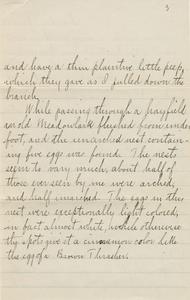 3
and have a thin plaintive little peep,
which they gave as I pulled down the
branch.
While passing through a hayfield
an old Meadowlark flushed from under
foot, and the unarched nest contain-
ing five eggs was found. The nests
seem to vary much, about half of
those ever seen by me were arched,
and half unarched. The eggs in this
nest were exceptionally light colored,
in fact almost white, while otherwise
the spots just a cinnamon color like
the egg of a Brown Thrasher.